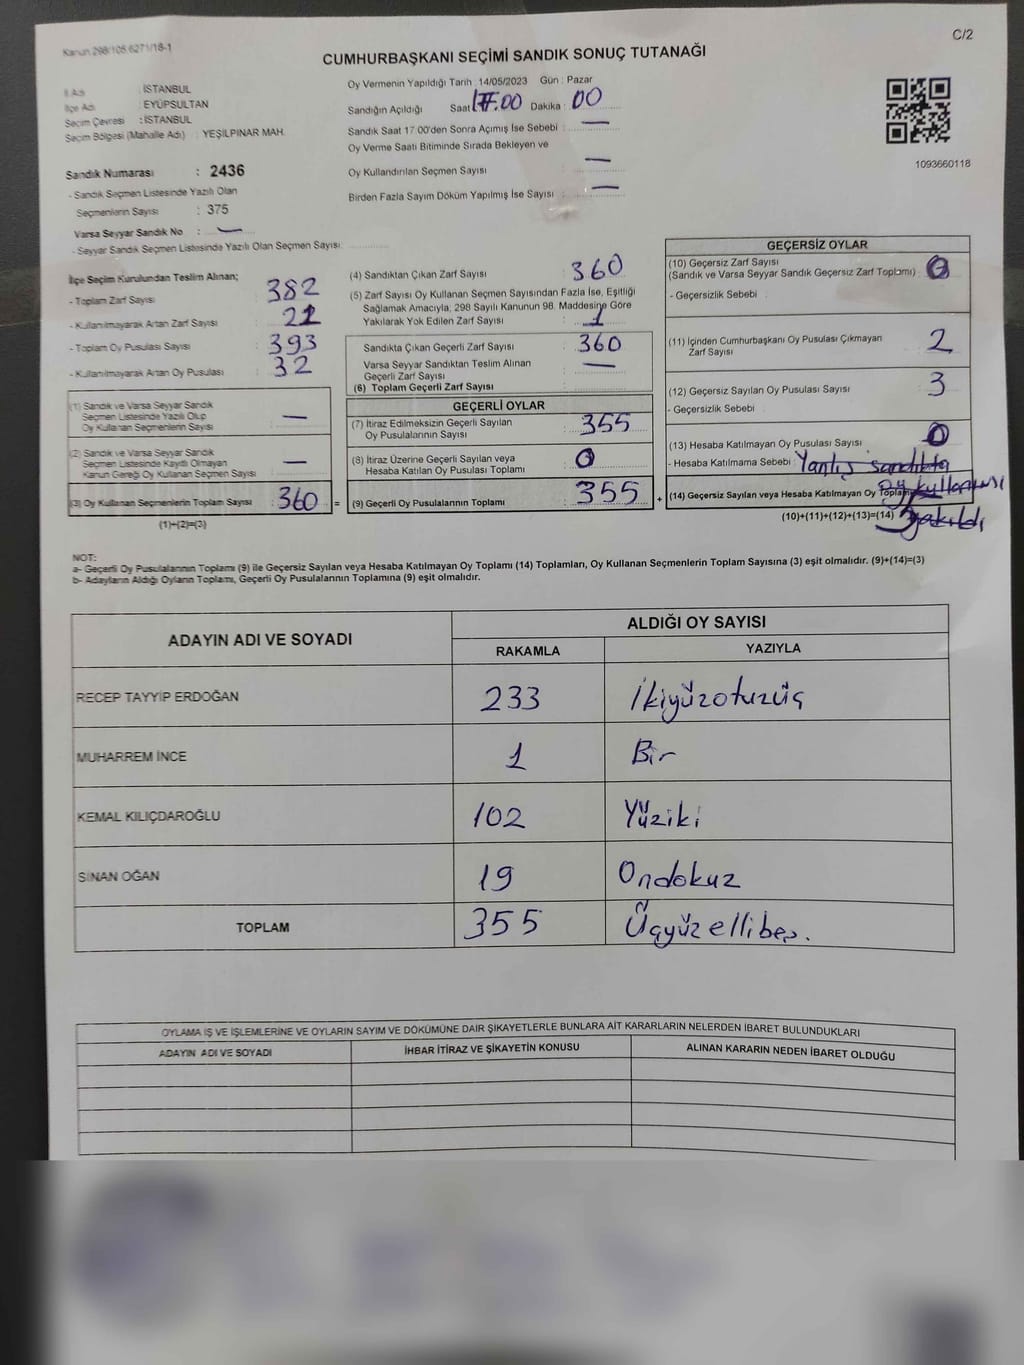 Kanun 298/105 6271/18-1
C/2
CUMHURBAŞKANI SEÇİMİ SANDIK SONUÇ TUTANAĞI
İl Adı : İSTANBUL
İlçe Adı : EYÜPSULTAN
Seçim Çevresi : İSTANBUL
Seçim Bölgesi (Mahalle Adı) : YEŞİLPINAR MAH.
Sandık Numarası : 2436
- Sandık Seçmen Listesinde Yazılı Olan
Seçmenlerin Sayısı : 375
Varsa Seyyar Sandık No : —
- Seyyar Sandık Seçmen Listesinde Yazılı Olan Seçmen Sayısı:
Oy Vermenin Yapıldığı Tarih : 14/05/2023 Gün : Pazar
Sandığın Açıldığı Saat 17.00 Dakika : 00
Sandık Saat 17:00'den Sonra Açımış İse Sebebi : —
Oy Verme Saati Bitiminde Sırada Bekleyen ve
Oy Kullandırılan Seçmen Sayısı : —
Birden Fazla Sayım Döküm Yapılmış İse Sayısı : —
1093660118
İlçe Seçim Kurulundan Teslim Alınan;
- Toplam Zarf Sayısı : 382
- Kullanılmayarak Artan Zarf Sayısı : 21
- Toplam Oy Pusulası Sayısı : 393
- Kullanılmayarak Artan Oy Pusulası : 32
(1) Sandık ve Varsa Seyyar Sandık
Seçmen Listesinde Yazılı Olup
Oy Kullanan Seçmenlerin Sayısı : —
(2) Sandık ve Varsa Seyyar Sandık
Seçmen Listesinde Kayıtlı Olmayan
Kanun Gereği Oy Kullanan Seçmen Sayısı : —
(3) Oy Kullanan Seçmenlerin Toplam Sayısı : 360 =
(1)+(2)=(3)
(4) Sandıktan Çıkan Zarf Sayısı : 360
(5) Zarf Sayısı Oy Kullanan Seçmen Sayısından Fazla İse, Eşitliği
Sağlamak Amacıyla, 298 Sayılı Kanunun 98. Maddesine Göre
Yakılarak Yok Edilen Zarf Sayısı : 1
Sandıkta Çıkan Geçerli Zarf Sayısı : 360
Varsa Seyyar Sandıktan Teslim Alınan
Geçerli Zarf Sayısı : —
(6) Toplam Geçerli Zarf Sayısı :
GEÇERLİ OYLAR
(7) İtiraz Edilmeksizin Geçerli Sayılan
Oy Pusulalarının Sayısı : 355
(8) İtiraz Üzerine Geçerli Sayılan veya
Hesaba Katılan Oy Pusulası Toplamı : 0
(9) Geçerli Oy Pusulalarının Toplamı : 355 +
GEÇERSİZ OYLAR
(10) Geçersiz Zarf Sayısı
(Sandık ve Varsa Seyyar Sandık Geçersiz Zarf Toplamı) : 0
- Geçersizlik Sebebi :
(11) İçinden Cumhurbaşkanı Oy Pusulası Çıkmayan
Zarf Sayısı : 2
(12) Geçersiz Sayılan Oy Pusulası Sayısı : 3
- Geçersizlik Sebebi :
(13) Hesaba Katılmayan Oy Pusulası Sayısı : 0
- Hesaba Katılmama Sebebi : Yanlış sandıkta
oy kullanması
(14) Geçersiz Sayılan veya Hesaba Katılmayan Oy Toplamı
(10)+(11)+(12)+(13)=(14) yakıldı
NOT:
a- Geçerli Oy Pusulalarının Toplamı (9) ile Geçersiz Sayılan veya Hesaba Katılmayan Oy Toplamı (14) Toplamları, Oy Kullanan Seçmenlerin Toplam Sayısına (3) eşit olmalıdır. (9)+(14)=(3)
b- Adayların Aldığı Oyların Toplamı, Geçerli Oy Pusulalarının Toplamına (9) eşit olmalıdır.
ADAYIN ADI VE SOYADI
ALDIĞI OY SAYISI
RAKAMLA YAZIYLA
RECEP TAYYİP ERDOĞAN 233 İkiyüzotuzüç
MUHARREM İNCE 1 Bir
KEMAL KILIÇDAROĞLU 102 Yüziki
SİNAN OĞAN 19 Ondokuz
TOPLAM 355 Üçyüzellibeş.
OYLAMA İŞ VE İŞLEMLERİNE VE OYLARIN SAYIM VE DÖKÜMÜNE DAİR ŞİKAYETLERLE BUNLARA AİT KARARLARIN NELERDEN İBARET BULUNDUKLARI
ADAYIN ADI VE SOYADI İHBAR İTİRAZ VE ŞİKAYETİN KONUSU ALINAN KARARIN NEDEN İBARET OLDUĞU